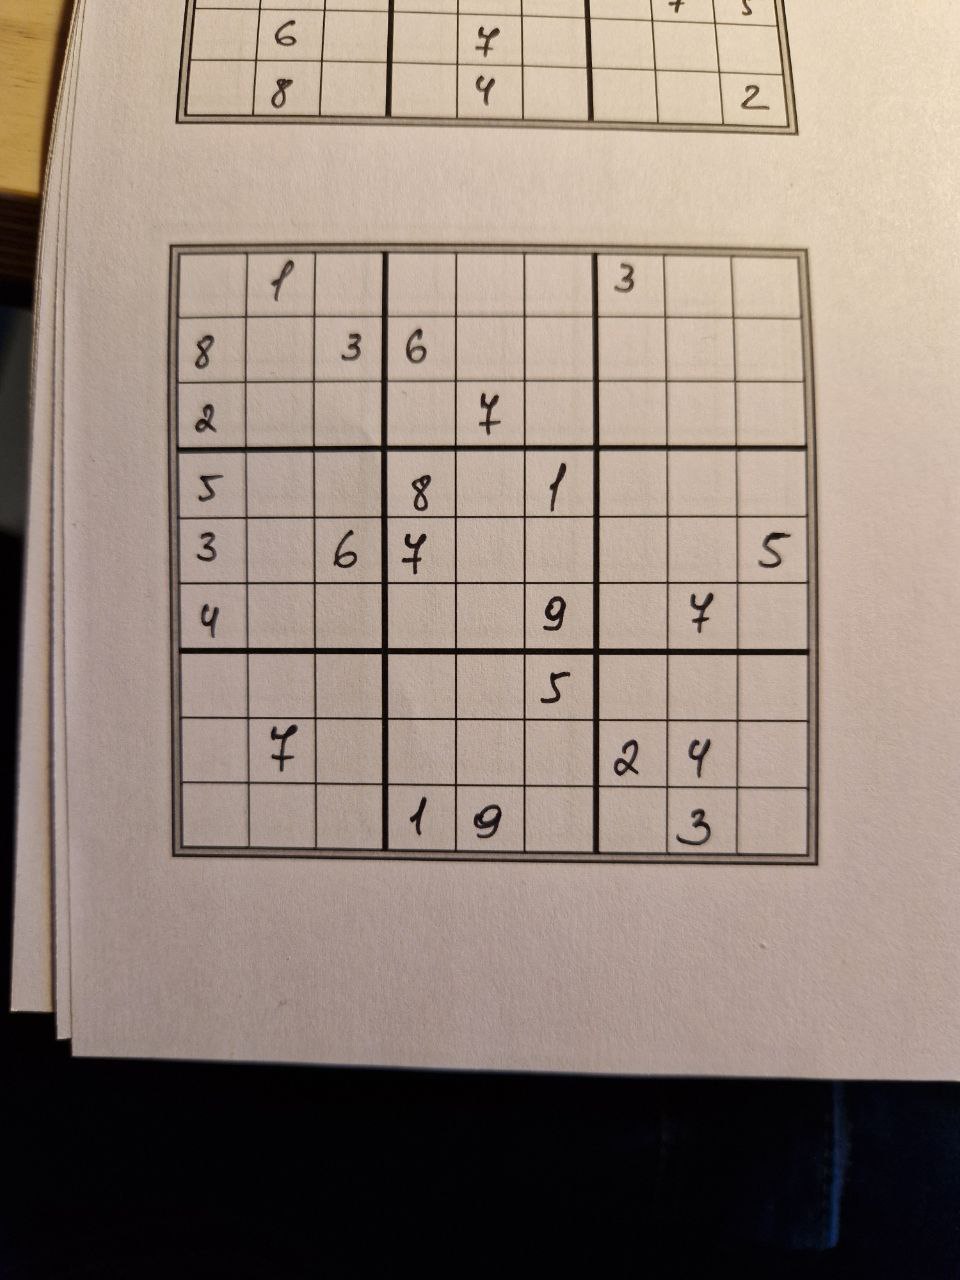 7 5
6 7
8 4 2
1 3
8 3 6
2 7
5 8 1
3 6 7 5
4 9 7
5
7 2 4
1 9 3